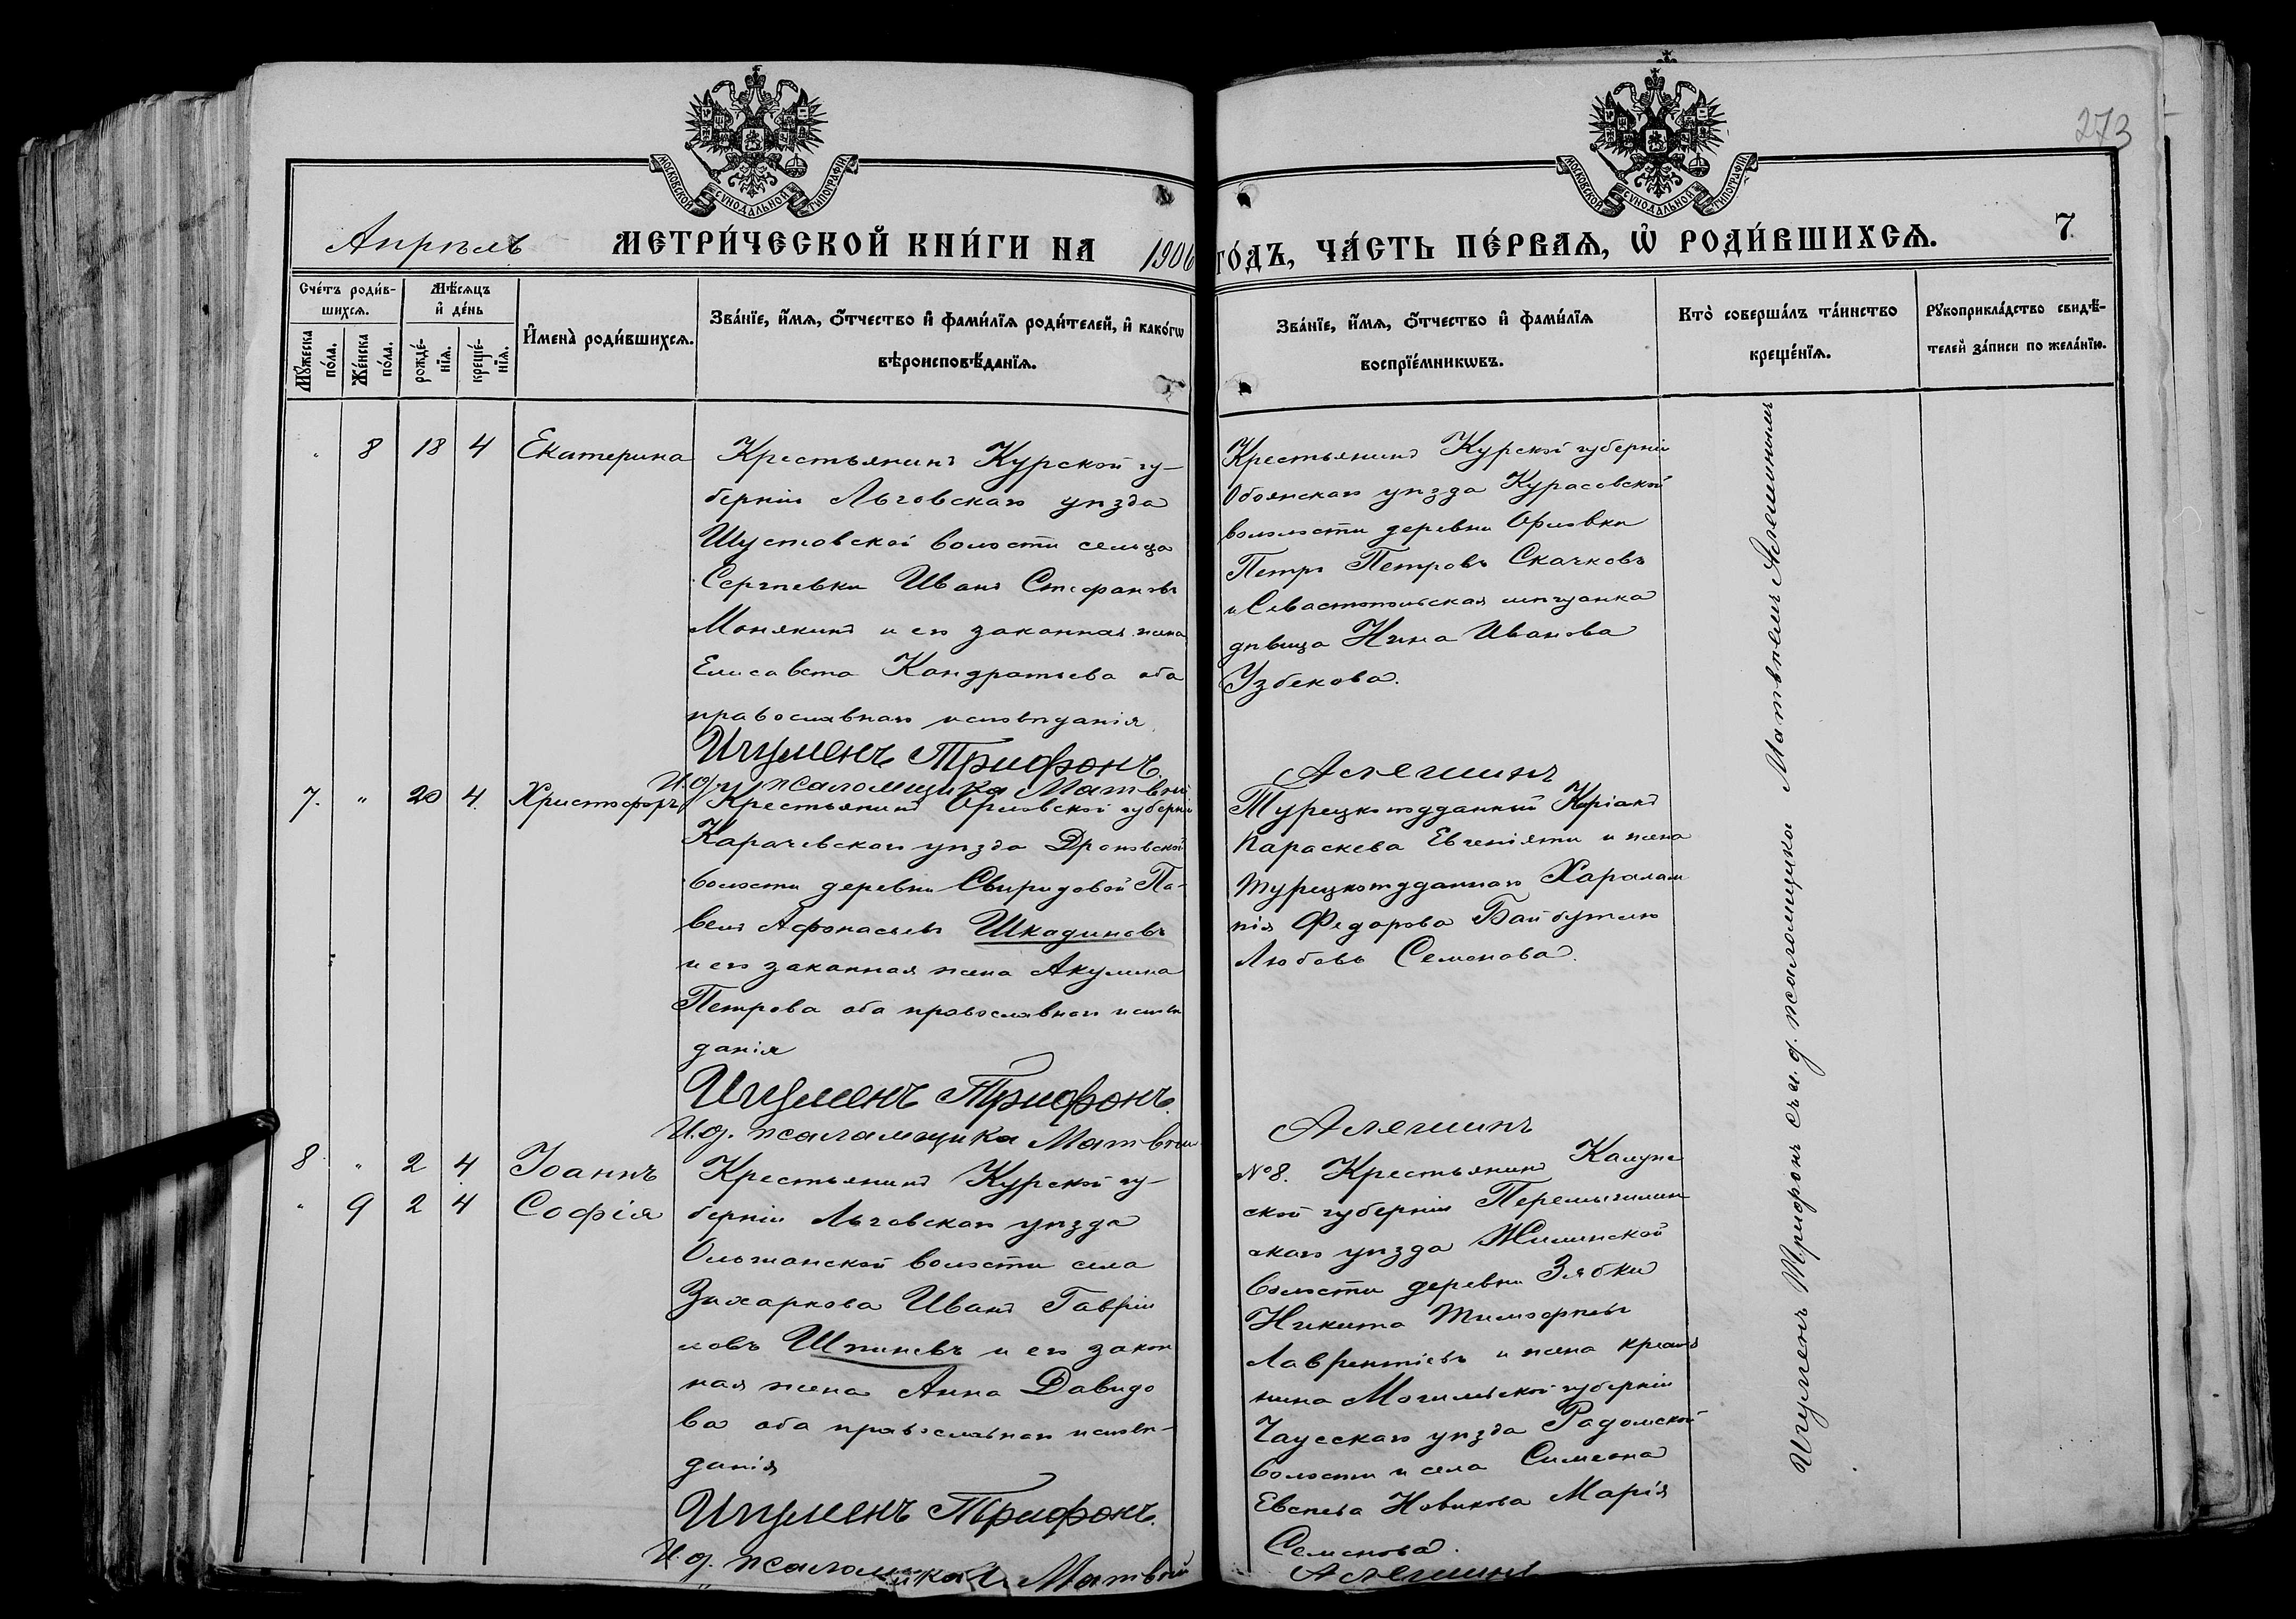 273
МОСКОВСКОЙ СУНОДАЛЬНОЙ ТИПОГРАФІИ
МОСКОВСКОЙ СУНОДАЛЬНОЙ ТИПОГРАФІИ
Апрѣль МЕТРИ́ЧЕСКОЙ КНИ́ГИ НА 1906 ГО́ДЪ, ЧА́СТЬ ПЕ́РВАѦ, Ѡ҆ РОДИ́ВШИХСѦ. 7
Сче́тъ роди́в-
шихсѧ.
Мꙋ́жеска
по́ла.
Же́нска
по́ла.
Мѣ́сѧцъ
и҆ де́нь
рожде́-
нїѧ.
креще́-
нїѧ.
И҆мена̀ роди́вшихсѧ.
Зва́нїе, и҆́мѧ, ѻ҆́тчество и҆ фами́лїѧ роди́телей, и҆ како́гѡ
вѣроисповѣ́данїѧ.
Зва́нїе, и҆́мѧ, ѻ҆́тчество и҆ фами́лїѧ
воспрїе́мникѡвъ.
Кто̀ соверша́лъ та́инство
креще́нїѧ.
Рꙋкоприкла́дство свидѣ́-
телей за́писи по жела́нїю.
" 8 18 4 Екатерина
Крестьянинъ Курской гу-
берніи Льговскаго уѣзда
Шустовской волости сельца
Сергѣевки Иванъ Стефановъ
Монякинъ и его законная жена
Елисавета Кондратьева оба
православнаго исповѣданія
Игуменъ Трифонъ.
И.д. псаломщика Матвѣй
Крестьянинъ Курской губерніи
Обоянскаго уѣзда Курасовской
волости деревни Орловки
Петръ Петровъ Скачковъ
и Севастопольская мѣщанка
дѣвица Нина Иванова
Узбекова.
Алешинъ
7. " 20 4. Христофоръ
Крестьянинъ Орловской губерніи
Карачевскаго уѣзда Дроновской
волости деревни Свиридовой Па-
велъ Афонасьевъ Шкадиновъ
и его законная жена Акулина
Петрова оба православнаго исповѣ
данія
Игуменъ Трифонъ.
И.д. псаломщика Матвѣй
Турецкоподданный Киріакъ
Параскева Евгеніяти и жена
турецкоподданнаго Харалам
пія Федорова
Любовь Семенова.
Алешинъ
8 " 2 4. Іоаннъ
" 9 2 4 Софія
Крестьянинъ Курской гу-
берніи Льговскаго уѣзда
Ольшанской волости села
Захаркова Иванъ Гаврии
ловъ Шпиневъ и его закон
ная жена Анна Давидо
ва оба православнаго исповѣ-
данія
Игуменъ Трифонъ.
И.д. псаломщика Матвѣй
№8. Крестьянинъ Калуж
ской губерніи Перемышлин
скаго уѣзда Жилинской
волости деревни Зябки
Никита Тимофѣевъ
Лаврентіевъ и жена крестья
нина Могилевской губерніи
Чаусскаго уѣзда Радомской
волости и села Симеона
Евсеева Новикова Марія
Семенова.
Алешинъ
Игуменъ Трифонъ съ и.д. псаломщика Матвѣемъ Алешинымъ